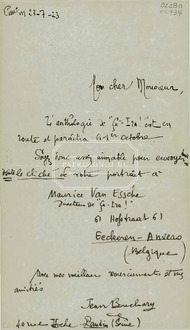 Pantin 23-7-23
Mon cher Monsieur,
L'anthologie de "Ça-Ira" est en
route et paraîtra le 1er octobre
Soyez donc assez aimable pour envoyer
le cliché de votre portrait à
Maurice Van Essche
Directeur de Ça-Ira!
61 Hofstraat 61
Eeckeren-Anvers
(Belgique)
Avec nos meilleurs remerciements et nos
amitiés
Jean
rue Hoche Pantin (Seine)